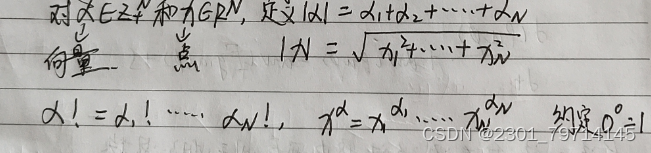 对α∈Z₊ᴺ和x∈Rᴺ, 定义|α|=α₁+α₂+……+α_N
向量 点 |x|=√(x₁²+……+x_N²)
α!=α₁!……α_N!, x^α=x₁^α₁……x_N^α_N 约定0⁰=1
CSDN @2301_79714145